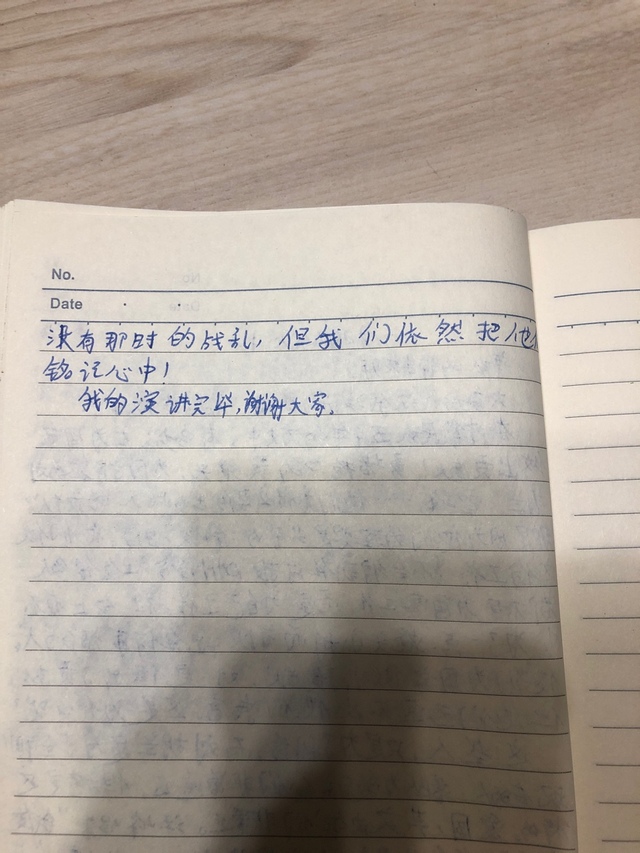 No.
Date
没有那时的战乱,但我们依然把他们
铭记心中!
我的演讲完毕,谢谢大家。